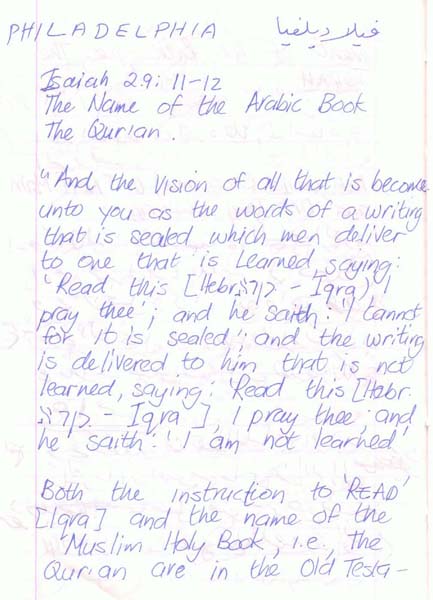 PHILADELPHIA فيلاديلفيا
Isaiah 29:11-12
The Name of the Arabic Book
The Qur'an.
"And the vision of all that is become
unto you as the words of a writing
that is sealed which men deliver
to one that is learned, saying:
'Read this [Hebr. קרא - Iqra) I
pray thee'; and he saith: 'I cannot
for it is sealed'; and the writing
is delivered to him that is not
learned, saying: 'Read this [Hebr.
קרא - Iqra], I pray thee; and
he saith: 'I am not learned'
Both the instruction to 'READ'
[Iqra] and the name of the
Muslim Holy Book, i.e., The
Qur'an are in the Old Testa-